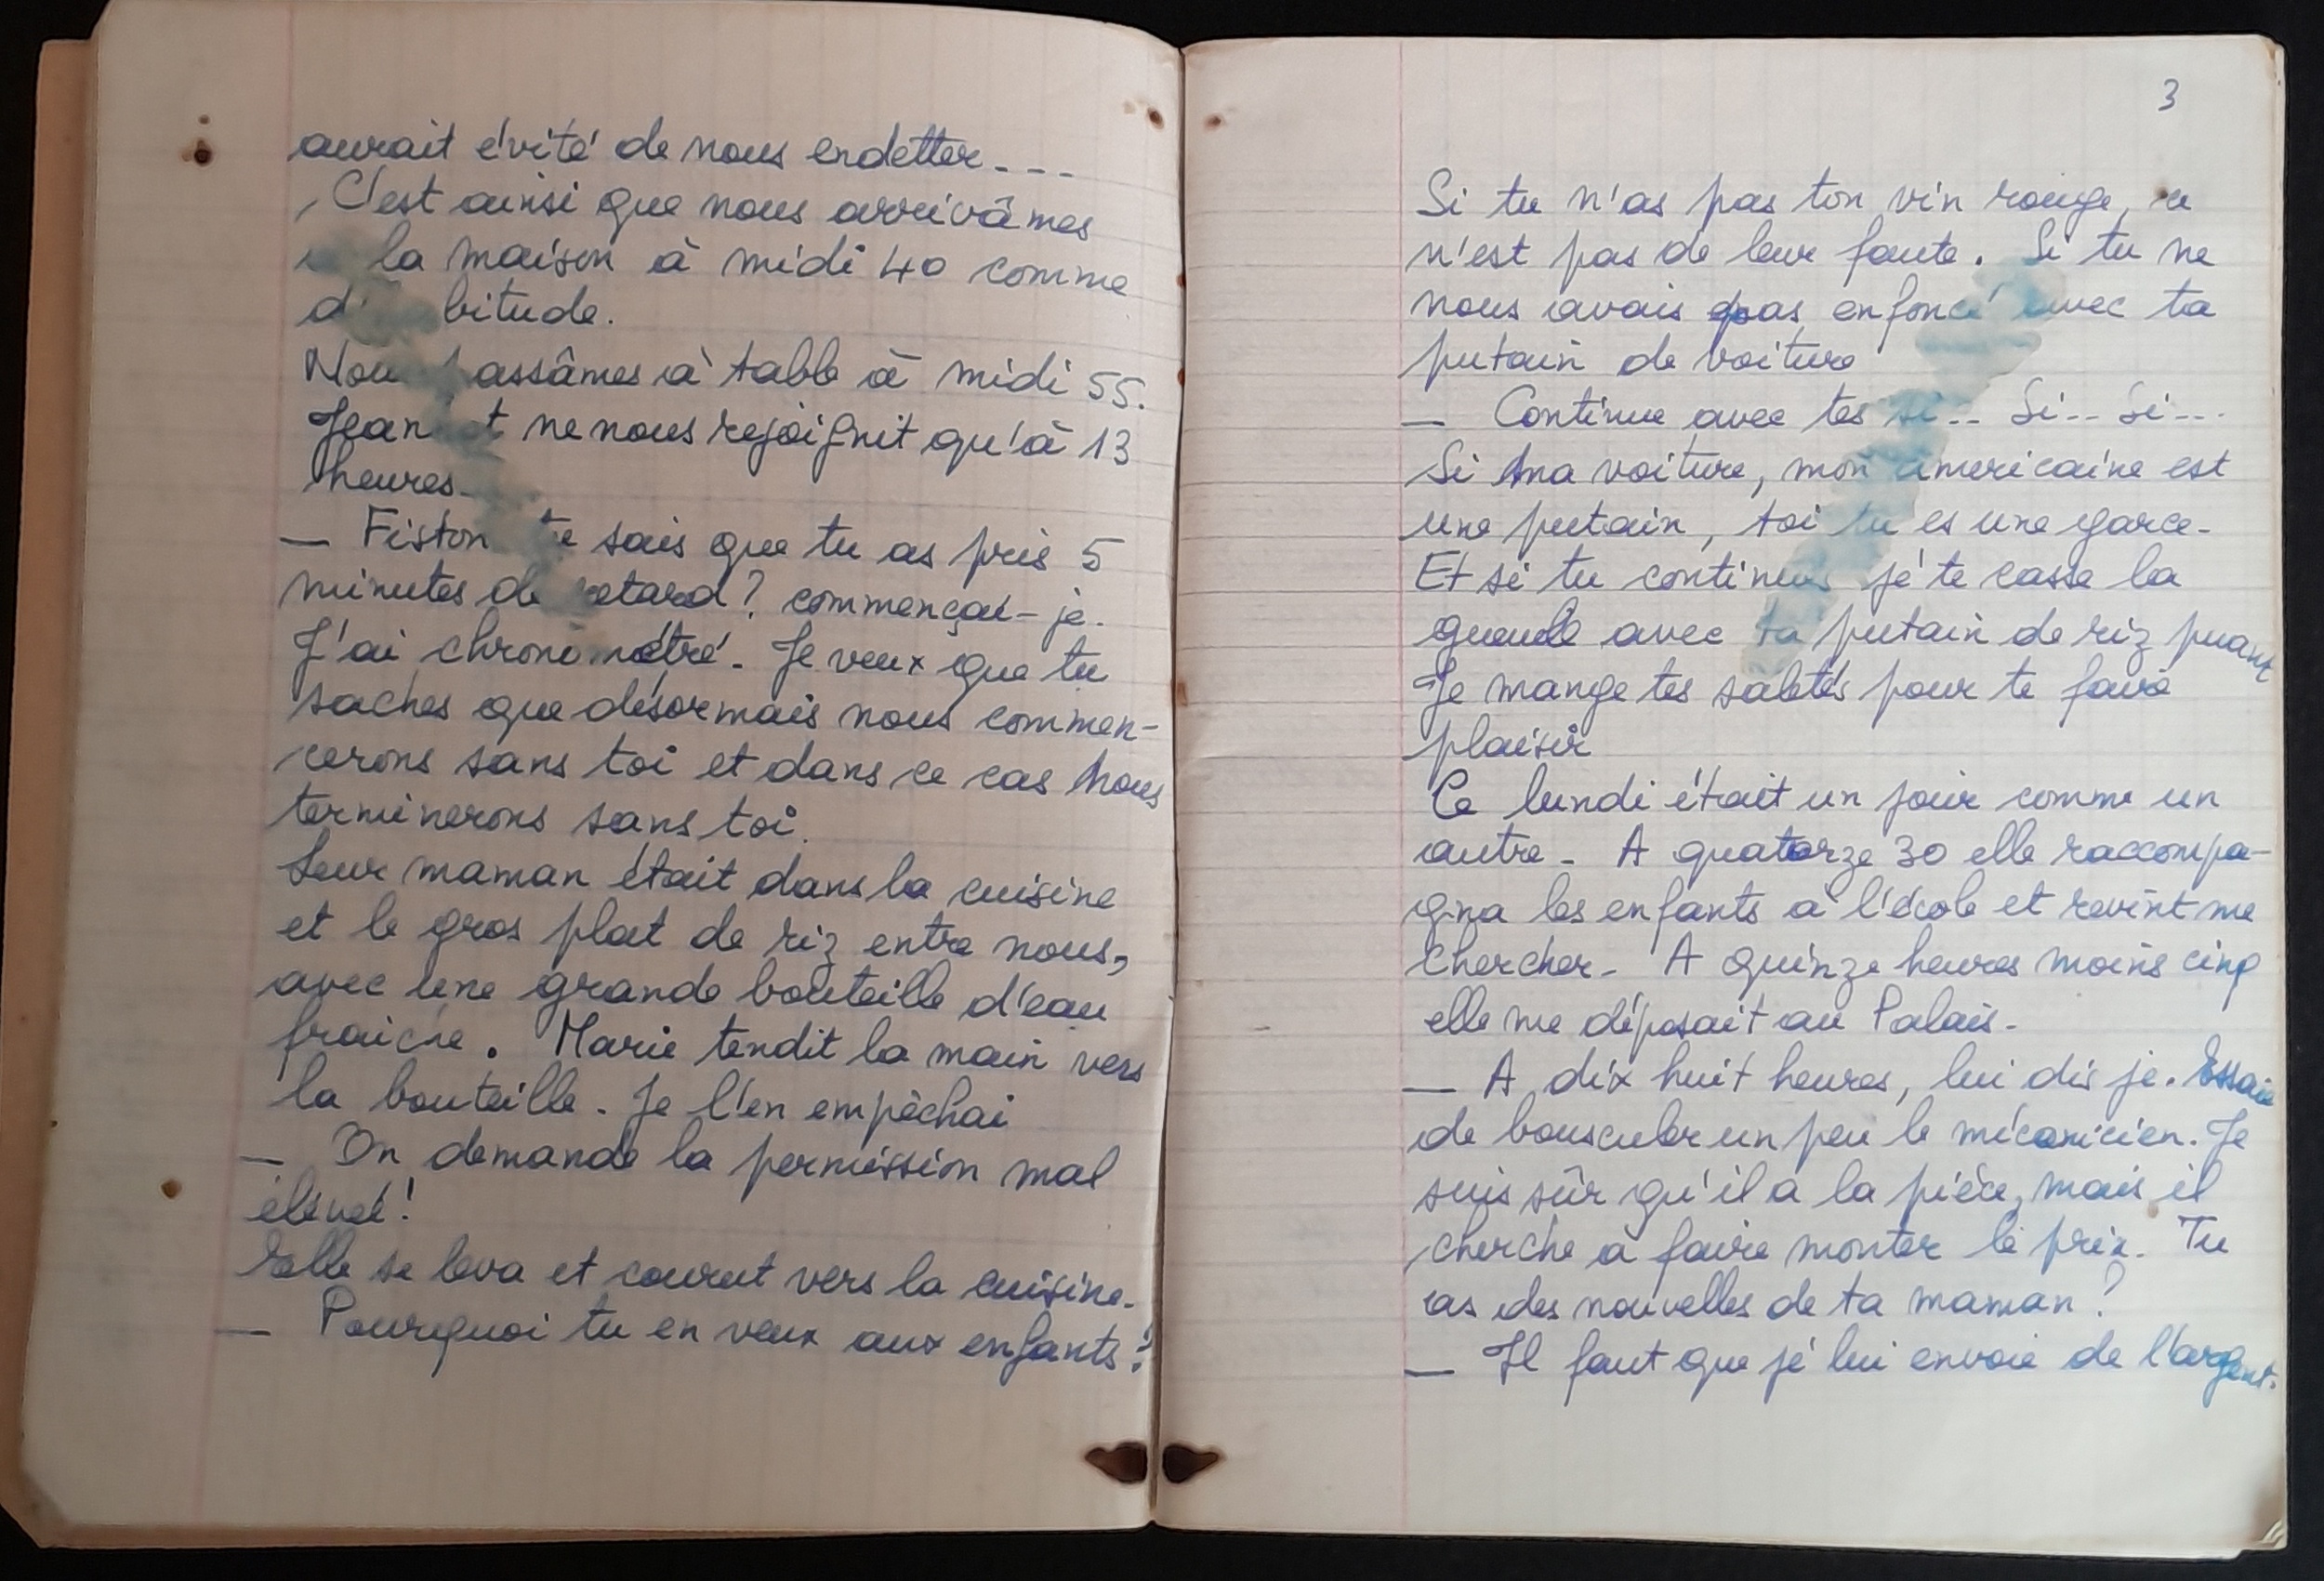 aurait évité de nous endetter...
C'est ainsi que nous arrivâmes
la maison à midi 40 comme
d' bitude.
Nou passâmes à table à midi 55.
Jean t ne nous rejoignit qu'à 13
heures.
— Fiston te sais que tu as pris 5
minutes de retard? commençai-je.
J'ai chronométré. Je veux que tu
saches que désormais nous commen-
cerons sans toi et dans ce cas nous
terminerons sans toi.
Leur maman était dans la cuisine
et le gros plat de riz entre nous,
avec une grande bouteille d'eau
fraiche. Marie tendit la main vers
la bouteille. Je l'en empêchai
— On demande la permission mal
élevé!
Elle se leva et courut vers la cuisine.
— Pourquoi tu en veux aux enfants?
3
Si tu n'as pas ton vin rouge, ce
n'est pas de leur faute. Si tu ne
nous avais pas enfoncé avec ta
putain de voiture
— Continue avec tes si... Si... Si...
Si ma voiture, mon américaine est
une putain, toi tu es une garce.
Et si tu continues je te casse la
gueule avec ta putain de riz puant
Je mange tes saletés pour te faire
plaisir
Ce lundi était un jour comme un
autre. A quatorze 30 elle raccompa-
gna les enfants à l'école et revint me
chercher. A quinze heures moins cinq
elle me déposait au Palais.
— A dix huit heures, lui dis je. Essaie
de bousculer un peu le mécanicien. Je
suis sûr qu'il a la pièce, mais il
cherche à faire monter le prix. Tu
as des nouvelles de ta maman?
— Il faut que je lui envoie de l'argent.